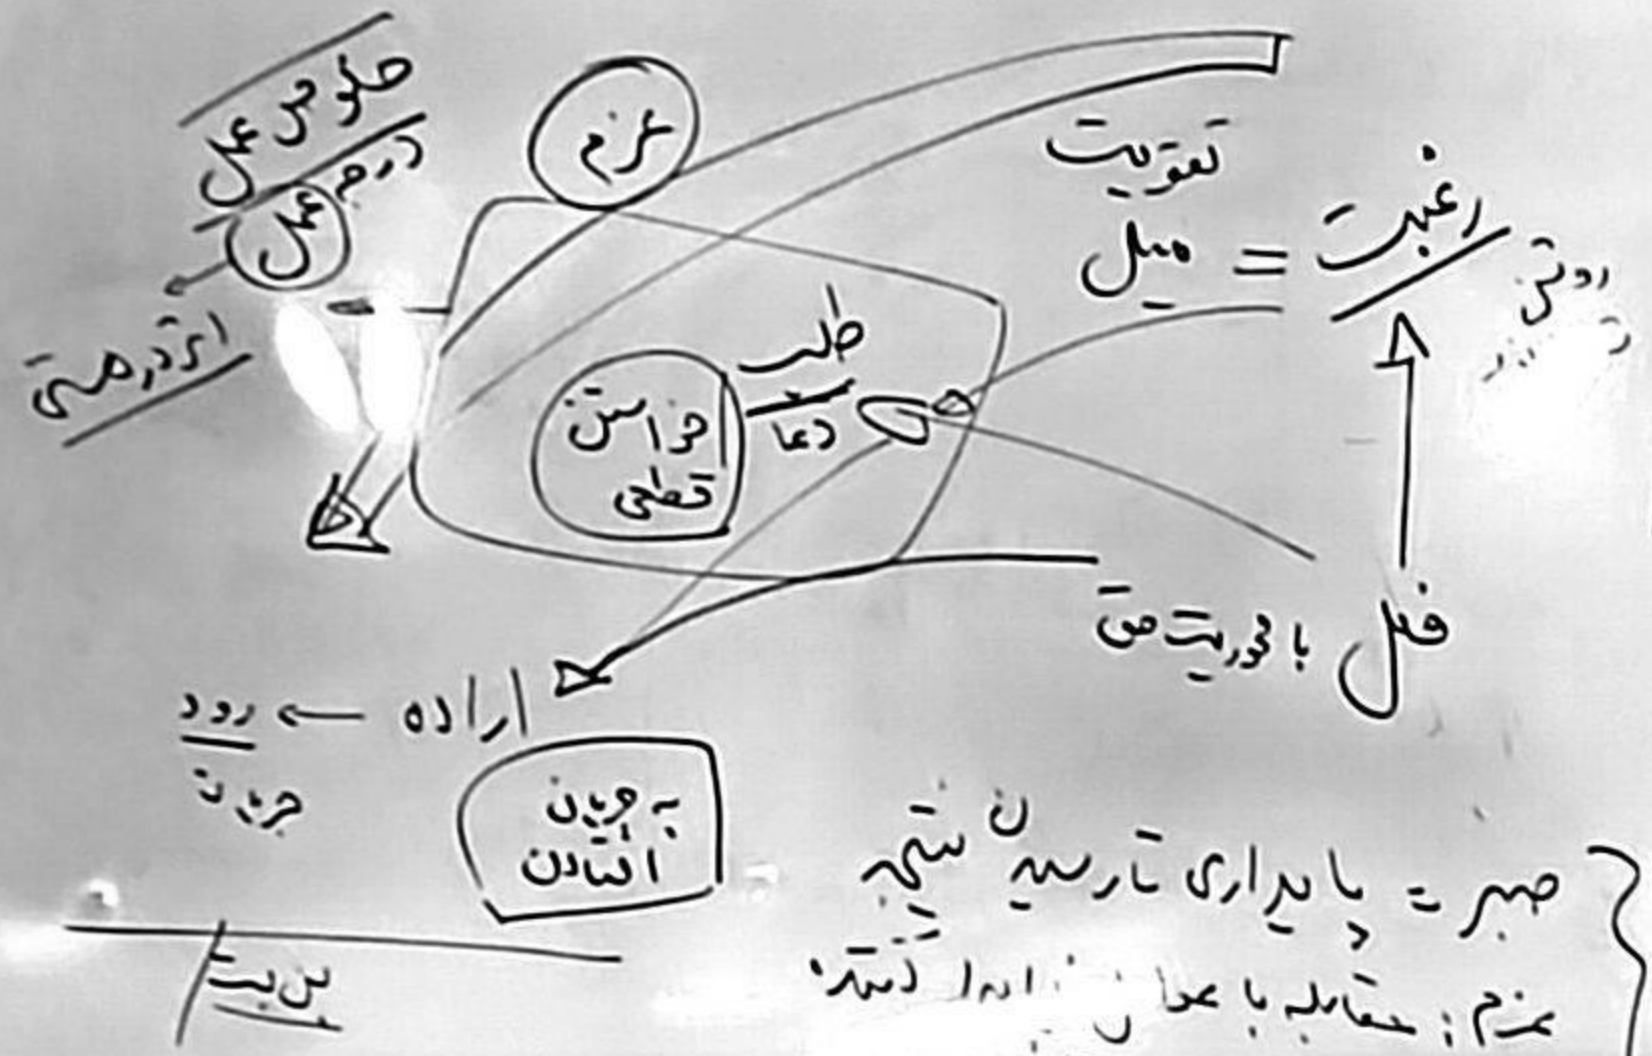 خلوص عمل
درجه
عمل
اثر در هستی
عزم
تقویت
رغبت = میل
طلب
دعا
خواستن
قطعی
فضل با محوریت حق
اراده ← رود
جریان
به جریان
افتادن
صبر = پایداری تا رسیدن نتیجه
عزم: مقابله با
بن بست